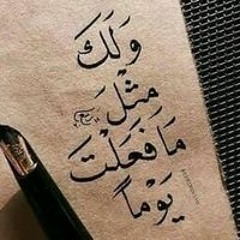 وَلَكَ
مِثْلَ
مَا فَعَلْتَ
يَوْمًا